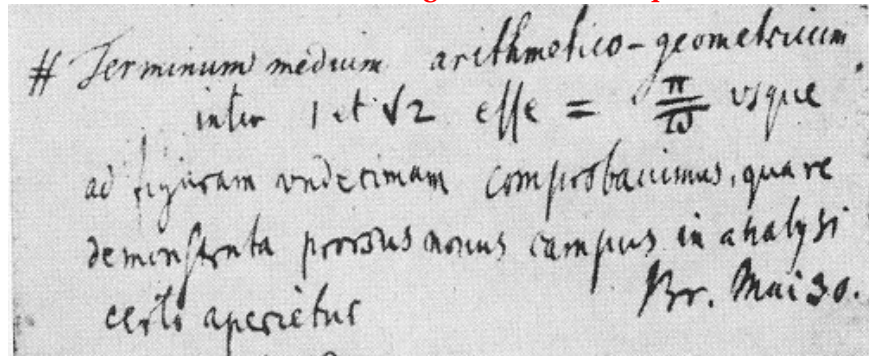 # Terminum medium arithmetico-geometricum
inter 1 et √2 esse = π/ϖ vsque
ad figuram vndecimam comprobauimus, quare
demonstrata prorsus nouus campus in analysi
certo aperietur Br. Mai 30.